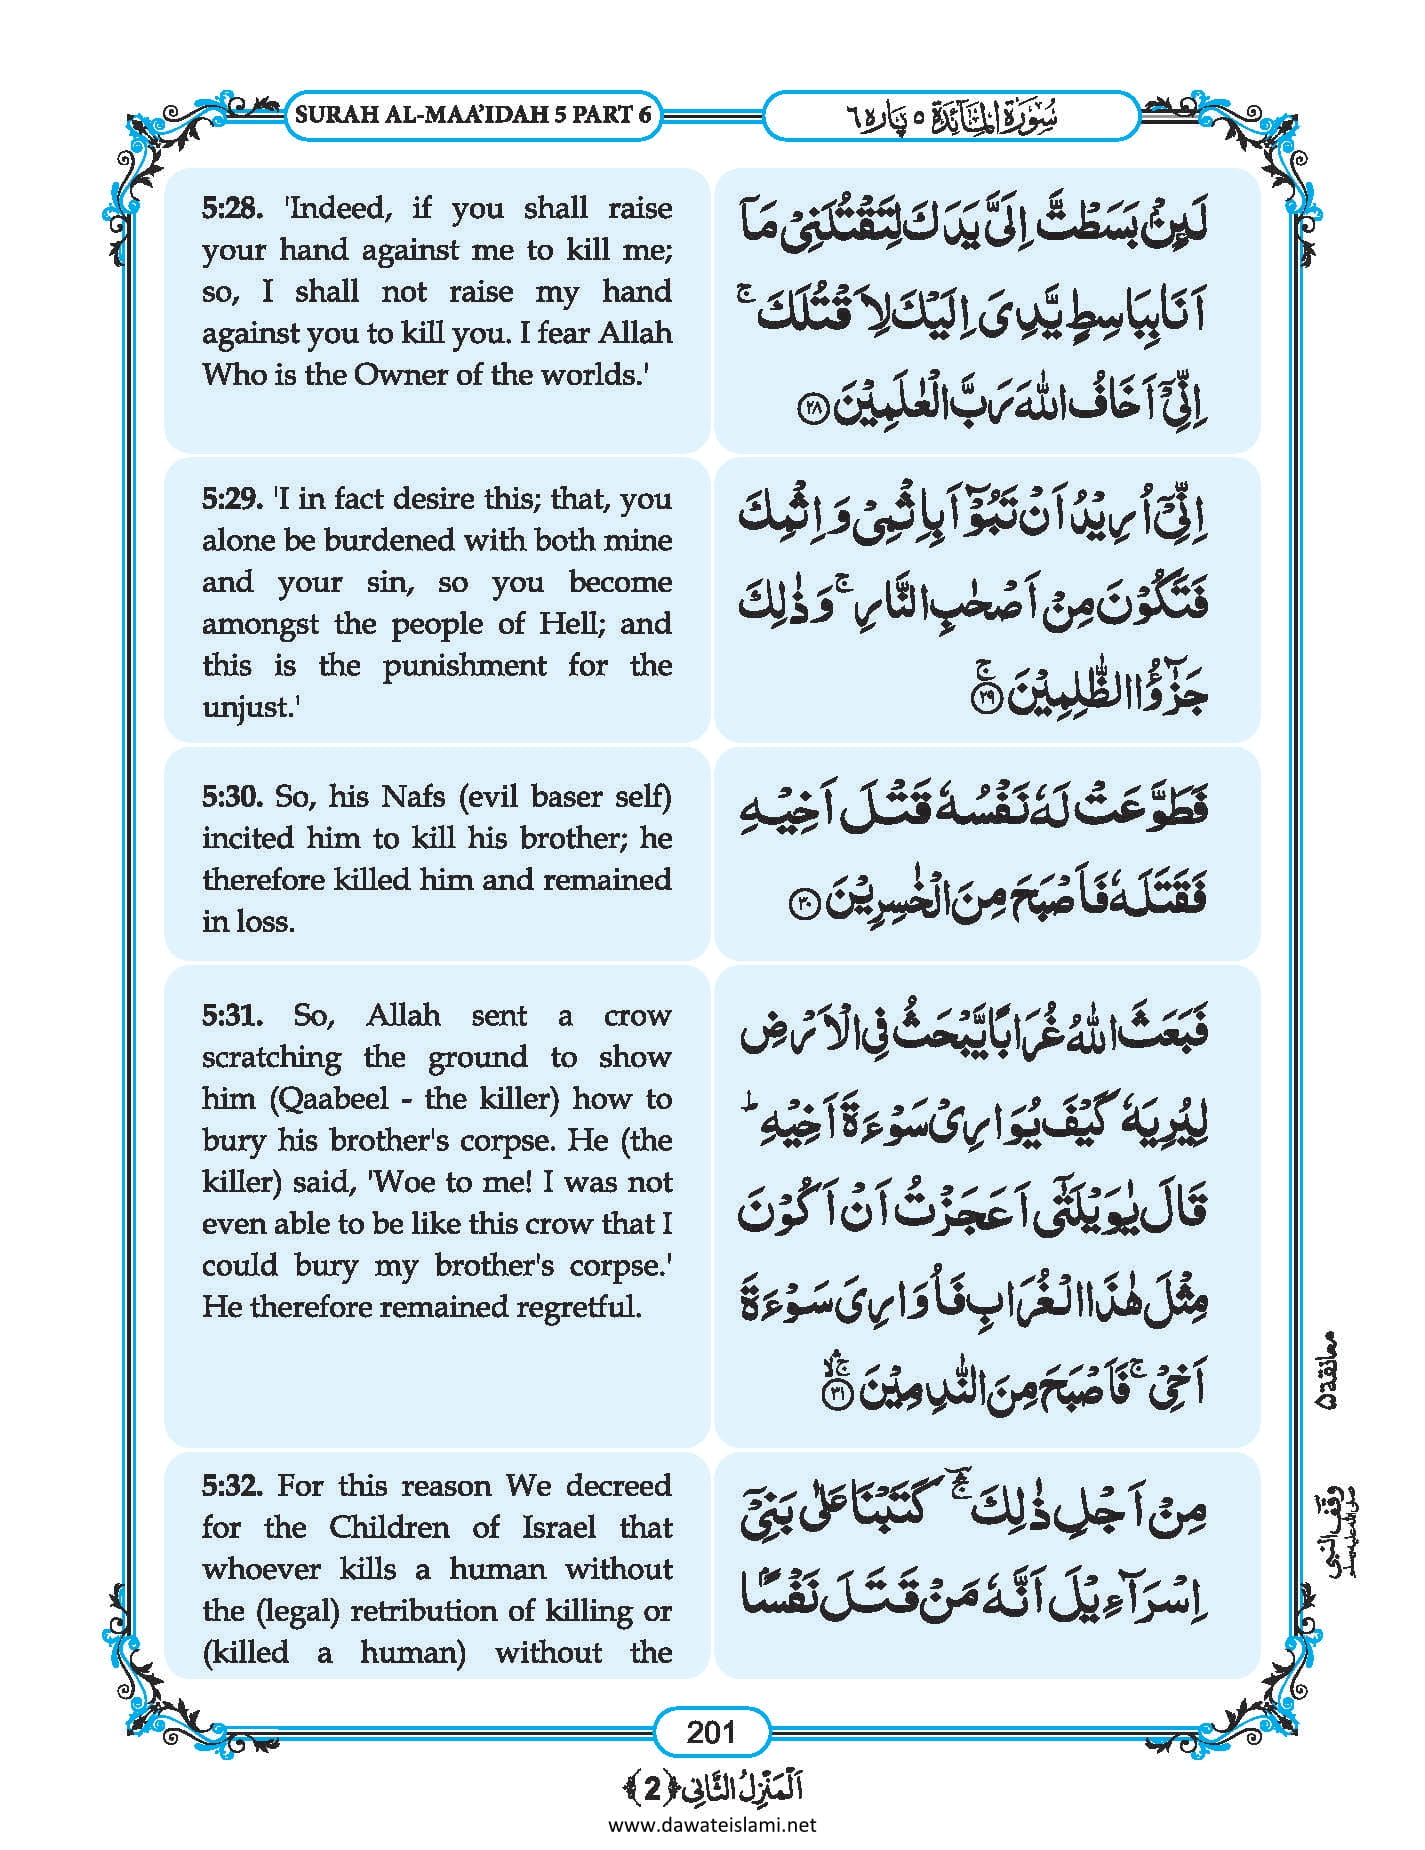 SURAH AL-MAA’IDAH 5 PART 6
سُوْرَةُ الْمَآئِدَة ٥ پَاره ٦
5:28. 'Indeed, if you shall raise
your hand against me to kill me;
so, I shall not raise my hand
against you to kill you. I fear Allah
Who is the Owner of the worlds.'
لَئِنْۢ بَسَطْتَّ اِلَیَّ یَدَكَ لِتَقْتُلَنِیْ مَاۤ
اَنَا بِبَاسِطٍ یَّدِیَ اِلَیْكَ لِاَقْتُلَكَ ۚ
اِنِّیْۤ اَخَافُ اللّٰهَ رَبَّ الْعٰلَمِیْنَ ﴿۲۸﴾
5:29. 'I in fact desire this; that, you
alone be burdened with both mine
and your sin, so you become
amongst the people of Hell; and
this is the punishment for the
unjust.'
اِنِّیْۤ اُرِیْدُ اَنْ تَبُوْٓاَ بِاِثْمِیْ وَ اِثْمِكَ
فَتَكُوْنَ مِنْ اَصْحٰبِ النَّارِ ۚ وَ ذٰلِكَ
جَزٰٓؤُا الظّٰلِمِیْنَ ﴿۲۹﴾ ۚ
5:30. So, his Nafs (evil baser self)
incited him to kill his brother; he
therefore killed him and remained
in loss.
فَطَوَّعَتْ لَهٗ نَفْسُهٗ قَتْلَ اَخِیْهِ
فَقَتَلَهٗ فَاَصْبَحَ مِنَ الْخٰسِرِیْنَ ﴿۳۰﴾
5:31. So, Allah sent a crow
scratching the ground to show
him (Qaabeel - the killer) how to
bury his brother's corpse. He (the
killer) said, 'Woe to me! I was not
even able to be like this crow that I
could bury my brother's corpse.'
He therefore remained regretful.
فَبَعَثَ اللّٰهُ غُرَابًا یَّبْحَثُ فِی الْاَرْضِ
لِیُرِیَهٗ كَیْفَ یُوَارِیْ سَوْءَةَ اَخِیْهِ ؕ
قَالَ یٰوَیْلَتٰۤی اَعَجَزْتُ اَنْ اَكُوْنَ
مِثْلَ هٰذَا الْغُرَابِ فَاُوَارِیَ سَوْءَةَ
اَخِیْ ۚ فَاَصْبَحَ مِنَ النّٰدِمِیْنَ ﴿۳۱﴾ ۚۛۙ
معانقة ۵
5:32. For this reason We decreed
for the Children of Israel that
whoever kills a human without
the (legal) retribution of killing or
(killed a human) without the
مِنْ اَجْلِ ذٰلِكَ ۚۛؔ كَتَبْنَا عَلٰی بَنِیْۤ
اِسْرَآءِیْلَ اَنَّهٗ مَنْ قَتَلَ نَفْسًۢا
وقف النبی
صلی الله علیه وسلم
201
اَلْمَنْزِلُ الثَّانِی ﴿2﴾
www.dawateislami.net